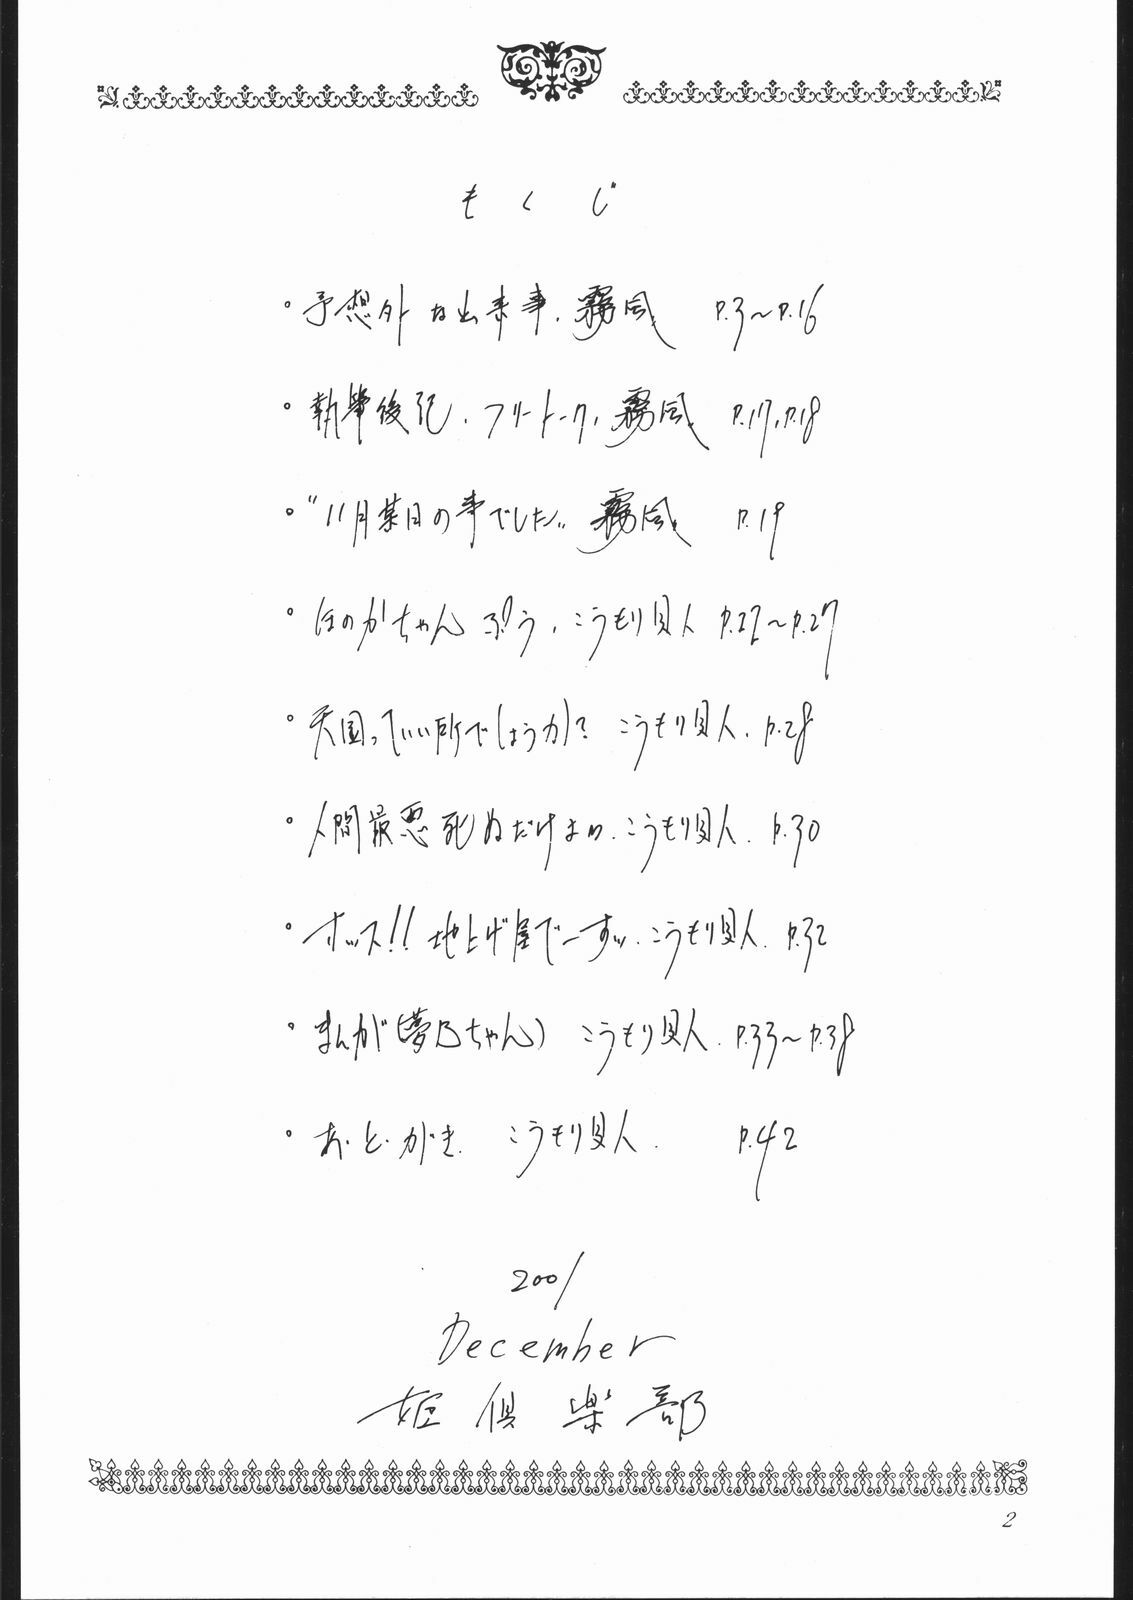 もくじ
・予想外な出来事、霧風 P.3〜P.16
・執筆後記、フリートーク、霧風 P.17、P.18
・“11月某日の事でした„ 霧風 P.19
・ほのかちゃんぷう、こうもり貝人 P.22〜P.27
・天国っていい所でしょうか？ こうもり貝人、P.28
・人間最悪死ぬだけまわ、こうもり貝人、P.30
・オッス!! 地上げ屋でーすッ、こうもり貝人、P.32
・まんが(夢乃ちゃん) こうもり貝人、P.33〜P.38
・あ・と・がき、こうもり貝人、P.42
2001
December
姫倶楽部
2